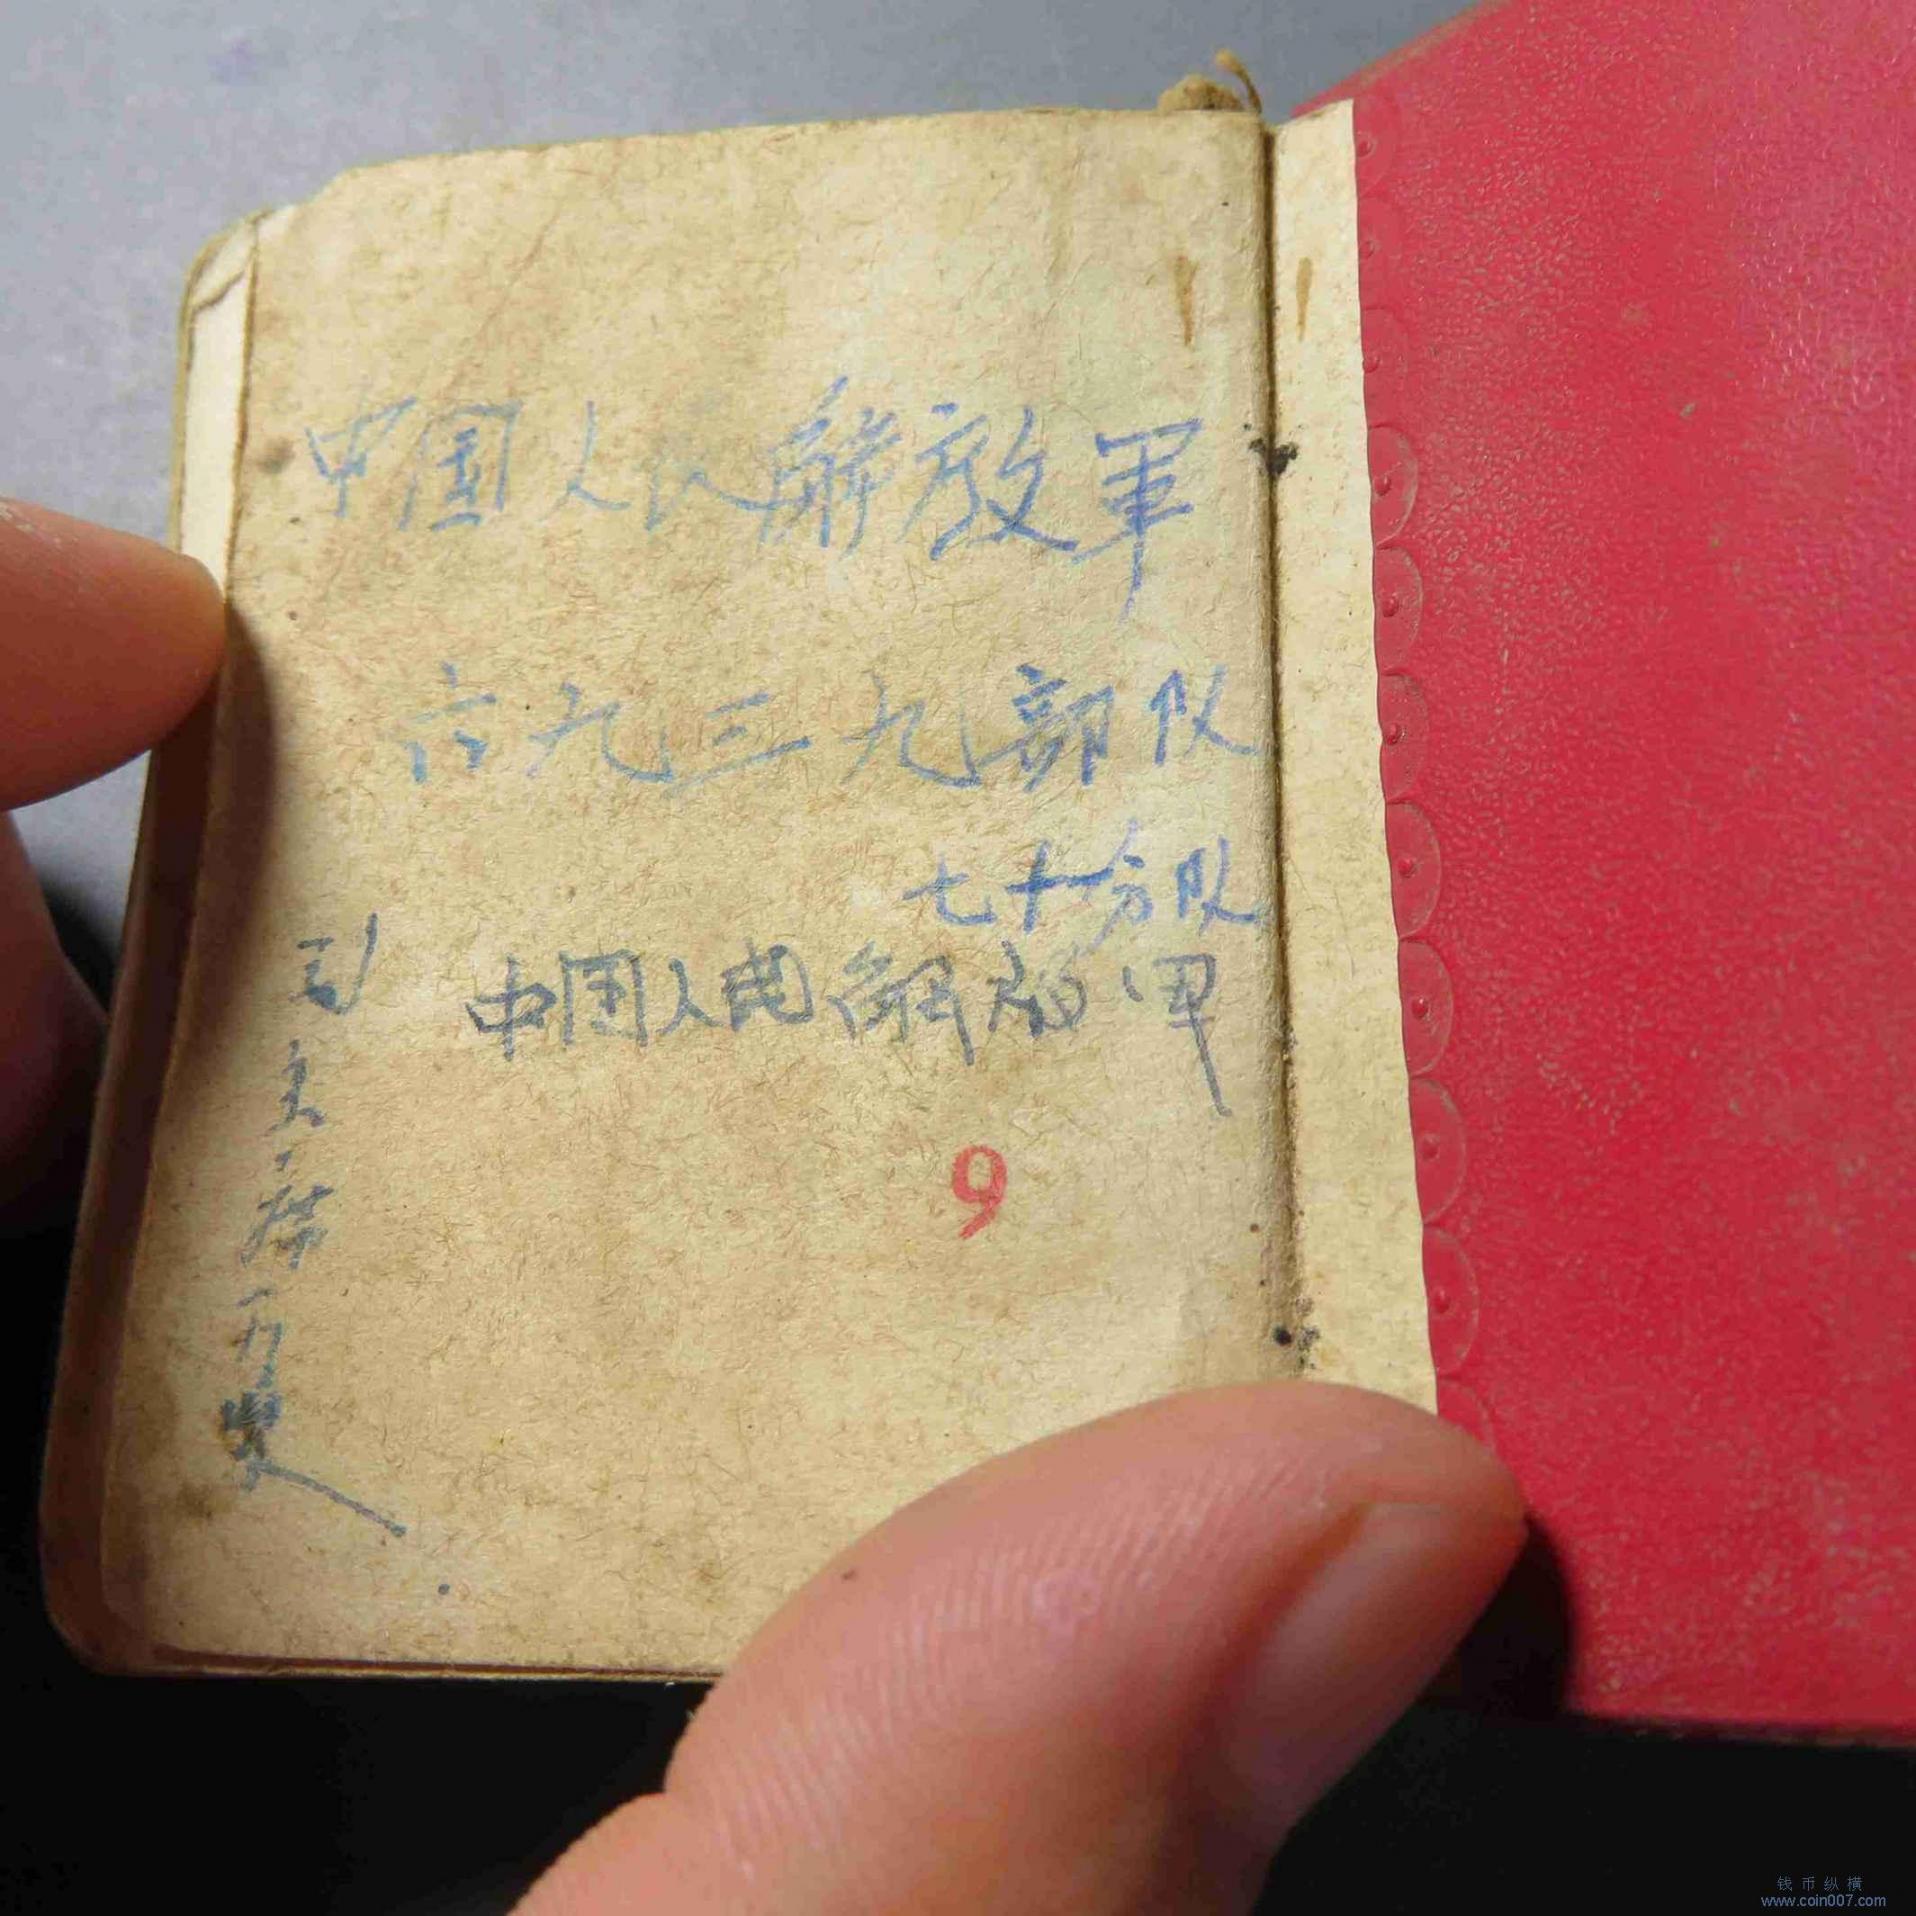 中国人民解放軍
六九三九部队
七十分队
中国人民解放军
9
钱币纵横
www.coin007.com